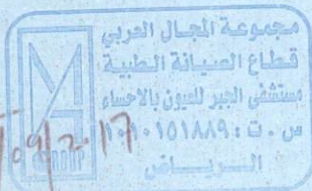 مجموعة المجال العربي
قطاع الصيانة الطبية
مستشفى الجبر للعيون بالاحساء
س . ت : ١٠١٠١٥١٨٨٩
الـريـــاض
GROUP